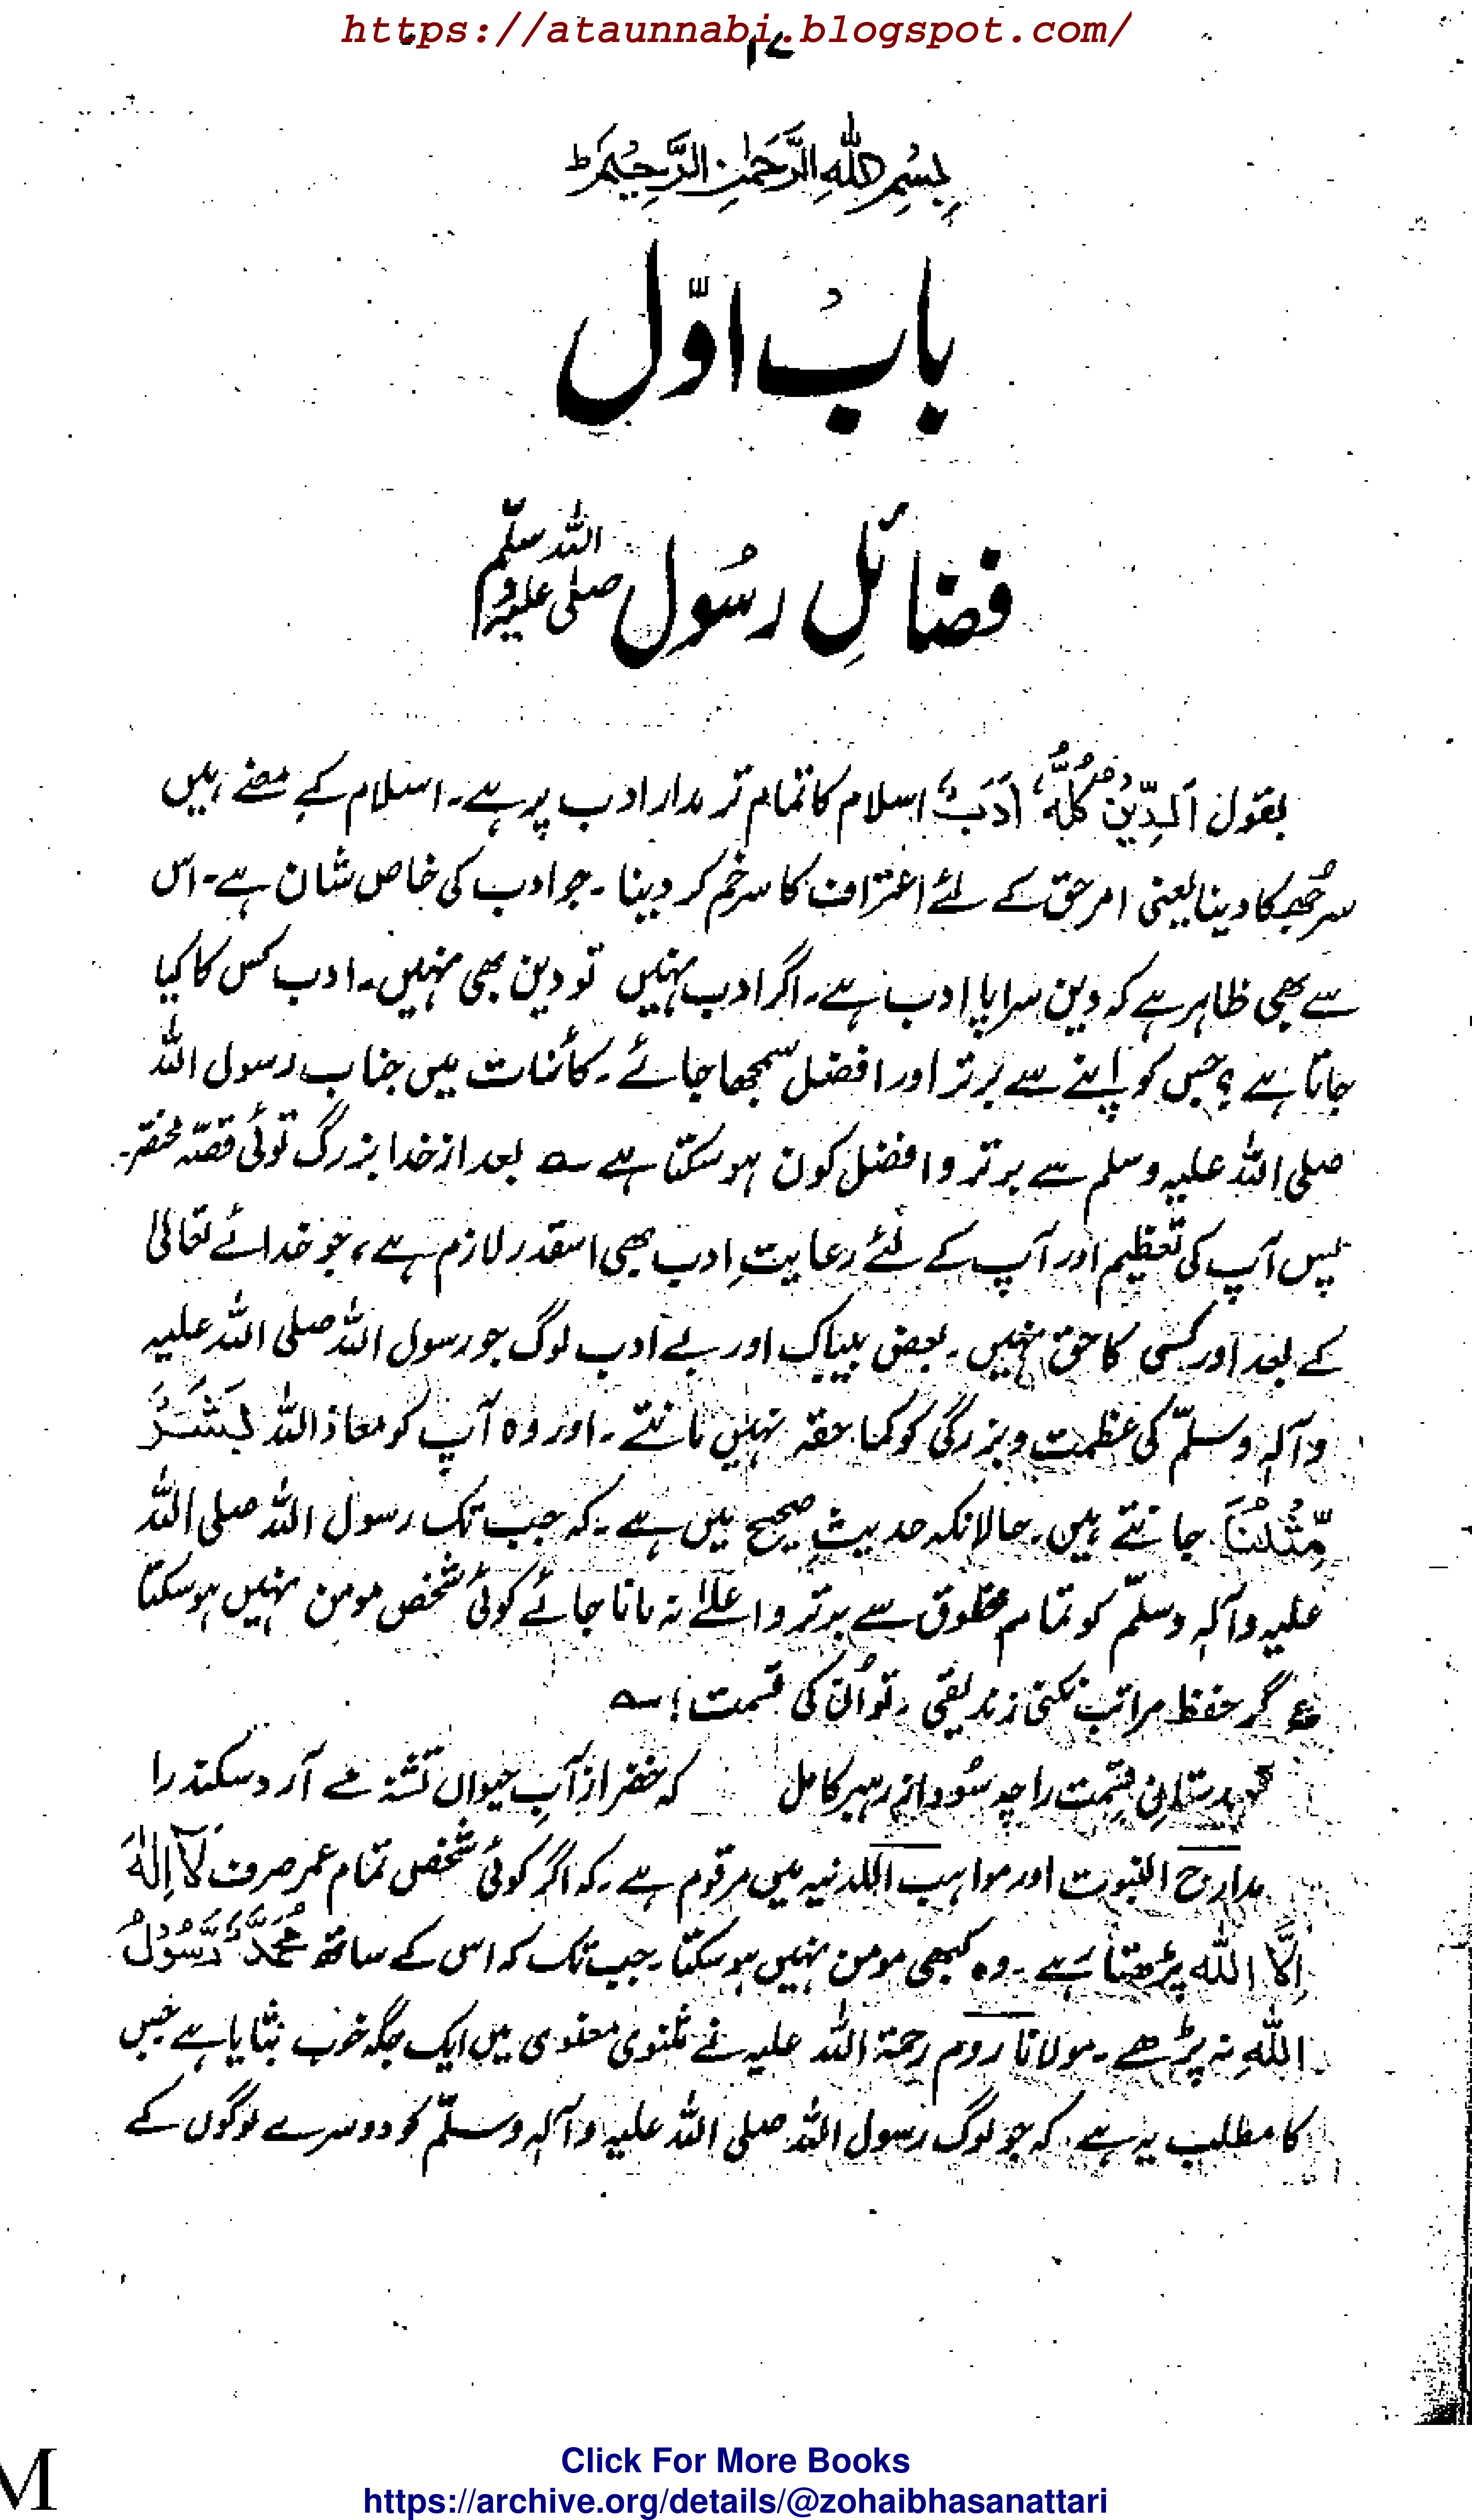 https://ataunnabi.blogspot.com/
۱۷
بِسْمِ اللّٰهِ الرَّحْمٰنِ الرَّحِیْمِ ط
باب اوّل
فضائلِ رسُول صلی اللہ علیہ وسلّم
بقول اَلدِّیْنُ کُلُّهٗ اَدَبٌ اسلام کا تمام تر مدار ادب پر ہے۔ اسلام کے معنے ہیں
سر جُھکا دینا یعنی امر حق کے لئے اعتراف کا سر خم کر دینا۔ جو ادب کی خاص شان ہے۔ اس
سے بھی ظاہر ہے کہ دین سراپا ادب ہے۔ اگر ادب نہیں تو دین بھی نہیں۔ ادب کس کا کیا
جاتا ہے؟ جس کو اپنے سے برتر اور افضل سمجھا جائے۔ کائنات میں جناب رسول اللہ
صلی اللہ علیہ وسلم سے برتر و افضل کون ہو سکتا ہے ؎ بعد از خدا بزرگ توئی قصّہ مختصر۔
پس آپ کی تعظیم اور آپ کے لئے رعایتِ ادب بھی اسقدر لازم ہے، جو خدائے تعالیٰ
کے بعد اور کسی کا حق نہیں۔ بعض بیباک اور بے ادب لوگ جو رسول اللہ صلی اللہ علیہ
وآلہٖ وسلّم کی عظمت و بزرگی کو کما حقہٗ نہیں مانتے۔ اور وہ آپ کو معاذ اللہ بَشَرٌ
مِّثْلُنَا جانتے ہیں۔ حالانکہ حدیثِ صحیح میں ہے۔ کہ جب تک رسول اللہ صلی اللہ
علیہ وآلہٖ وسلّم کو تمام مخلوق سے برتر و اعلےٰ نہ مانا جائے کوئی شخص مومن نہیں ہو سکتا
؏ گر حفظ مراتب نکنی زندیقی۔ تو اُن کی قسمت! ؎
تہیدستانِ قسمت را چہ سُود از رہبر کامل کہ خضر از آبِ حیواں تشنہ مے آرد سکندر را
مدارج النبوت اور مواہب اللدنیہ میں مرقوم ہے۔ کہ اگر کوئی شخص تمام عمر صرف لَآ اِلٰهَ
اِلَّا اللّٰه پڑھتا رہے۔ وہ کبھی مومن نہیں ہو سکتا۔ جب تک کہ اس کے ساتھ مُحَمَّدٌ رَّسُوْلُ
اللّٰهِ نہ پڑھے۔ مولانا روم رحمۃ اللہ علیہ نے مثنوی معنوی میں ایک جگہ خوب بتایا ہے جس
کا مطلب یہ ہے۔ کہ جو لوگ رسول اللہ صلی اللہ علیہ وآلہٖ وسلّم کو دوسرے لوگوں کے
M
Click For More Books
https://archive.org/details/@zohaibhasanattari